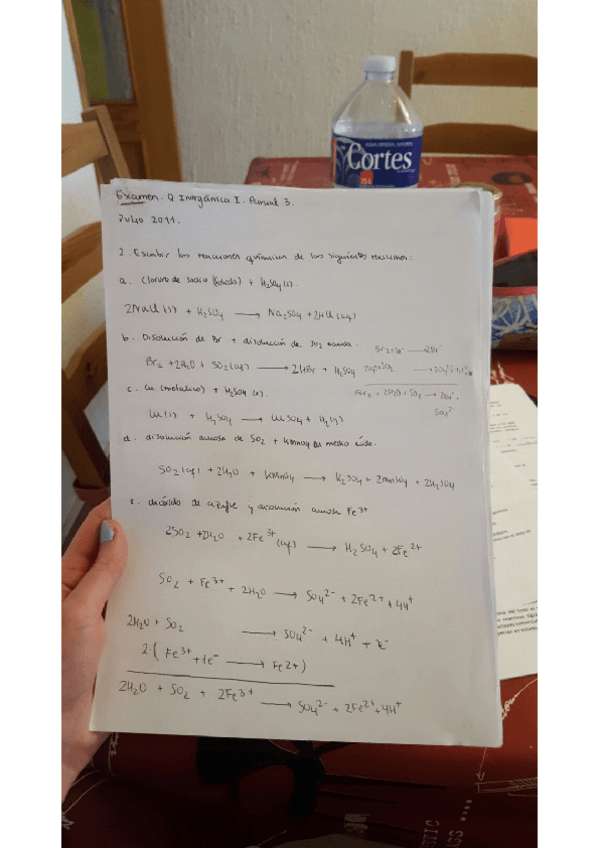 Cortes
Examen. Q Inorgánica I. Parcial 3.
Julio 2011.
2. Escribir las reacciones químicas de las siguientes reacciones:
a. Cloruro de sodio (sólido) + H2SO4 (c).
2NaCl (s) + H2SO4 → Na2SO4 + 2HCl (aq)
b. Disolución de Br + disolución de SO2 acuosa.
Br2 + 2H2O + SO2 (aq) → 2HBr + H2SO4
c. Cu (metálico) + H2SO4 (c).
Cu (s) + H2SO4 → CuSO4 + H2 (g)
d. disolución acuosa de SO2 + KMnO4 en medio ácido.
SO2 (aq) + 2H2O + KMnO4 → K2SO4 + 2MnSO4 + 2H2SO4
e. dióxido de azufre y disolución acuosa Fe3+
2SO2 + 2H2O + 2Fe3+ (aq) → H2SO4 + 2Fe2+
SO2 + Fe3+ + 2H2O → SO42- + 2Fe2+ + 4H+
2H2O + SO2 → SO42- + 4H+ +
2·( Fe3+ + 1e- → Fe2+)
2H2O + SO2 + 2Fe3+ → SO42- + 2Fe2+ + 4H+